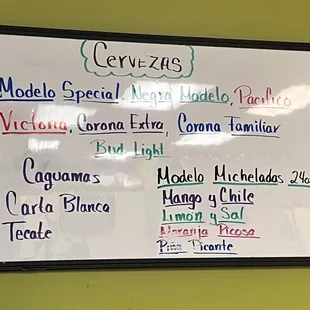 Cervezas
Modelo Special, Negra Modelo, Pacifico
Victoria, Corona Extra, Corona Familiar
Bud Light
Caguamas
Carta Blanca
Tecate
Modelo Micheladas 24oz
Mango y Chile
Limon y Sal
Naranja Picosa
Piña Picante